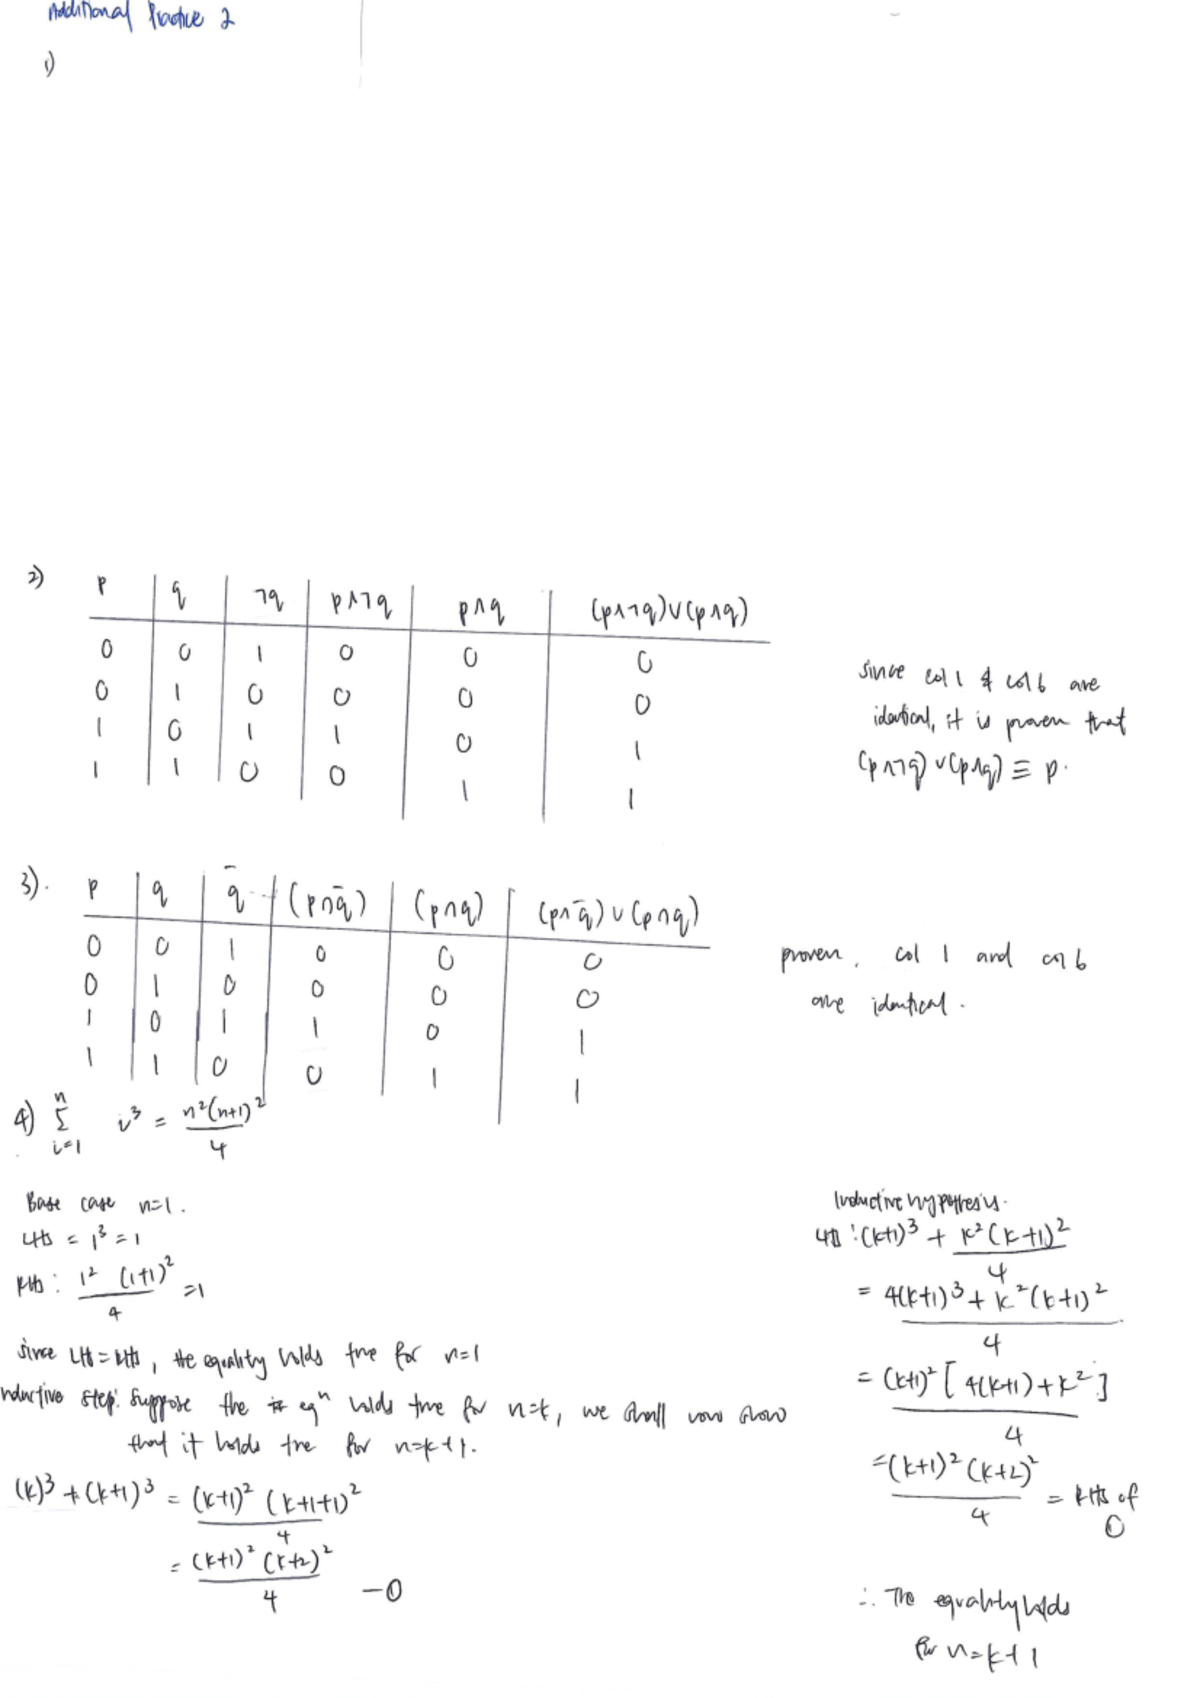 Additional Practice 2
1)
2)
p q ¬q p∧¬q p∧q (p∧¬q)∨(p∧q)
0 0 1 0 0 0
0 1 0 0 0 0
1 0 1 1 0 1
1 1 0 0 1 1
since col 1 & col 6 are
identical, it is proven that
(p∧¬q)∨(p∧q) ≡ p.
3).
p q q̄ (p∩q̄) (p∩q) (p∩q̄)∪(p∩q)
0 0 1 0 0 0
0 1 0 0 0 0
1 0 1 1 0 1
1 1 0 0 1 1
proven, col 1 and col 6
are identical.
4) Σ_{i=1}^{n} i³ = n²(n+1)²/4
Base case n=1.
LHS = 1³ = 1
RHS: 1² (1+1)²/4 = 1
since LHS = RHS, the equality holds true for n=1
nductive step: Suppose the eqⁿ holds true for n=k, we shall now show
that it holds true for n=k+1.
(k)³ + (k+1)³ = (k+1)² (k+1+1)²/4
= (k+1)² (k+2)²/4 —①
Inductive hypothesis.
LHS: (k+1)³ + k²(k+1)²/4
= 4(k+1)³ + k²(k+1)²/4
= (k+1)² [4(k+1)+k²]/4
= (k+1)² (k+2)²/4 = RHS of
①
∴ The equality holds
for n=k+1